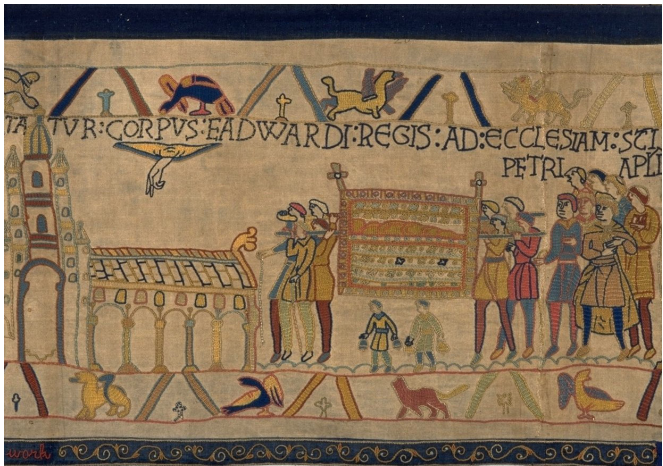 TATUR:CORPUS:EADWARDI:REGIS:AD:ECCLESIAM:SCI
PETRI APLI
work